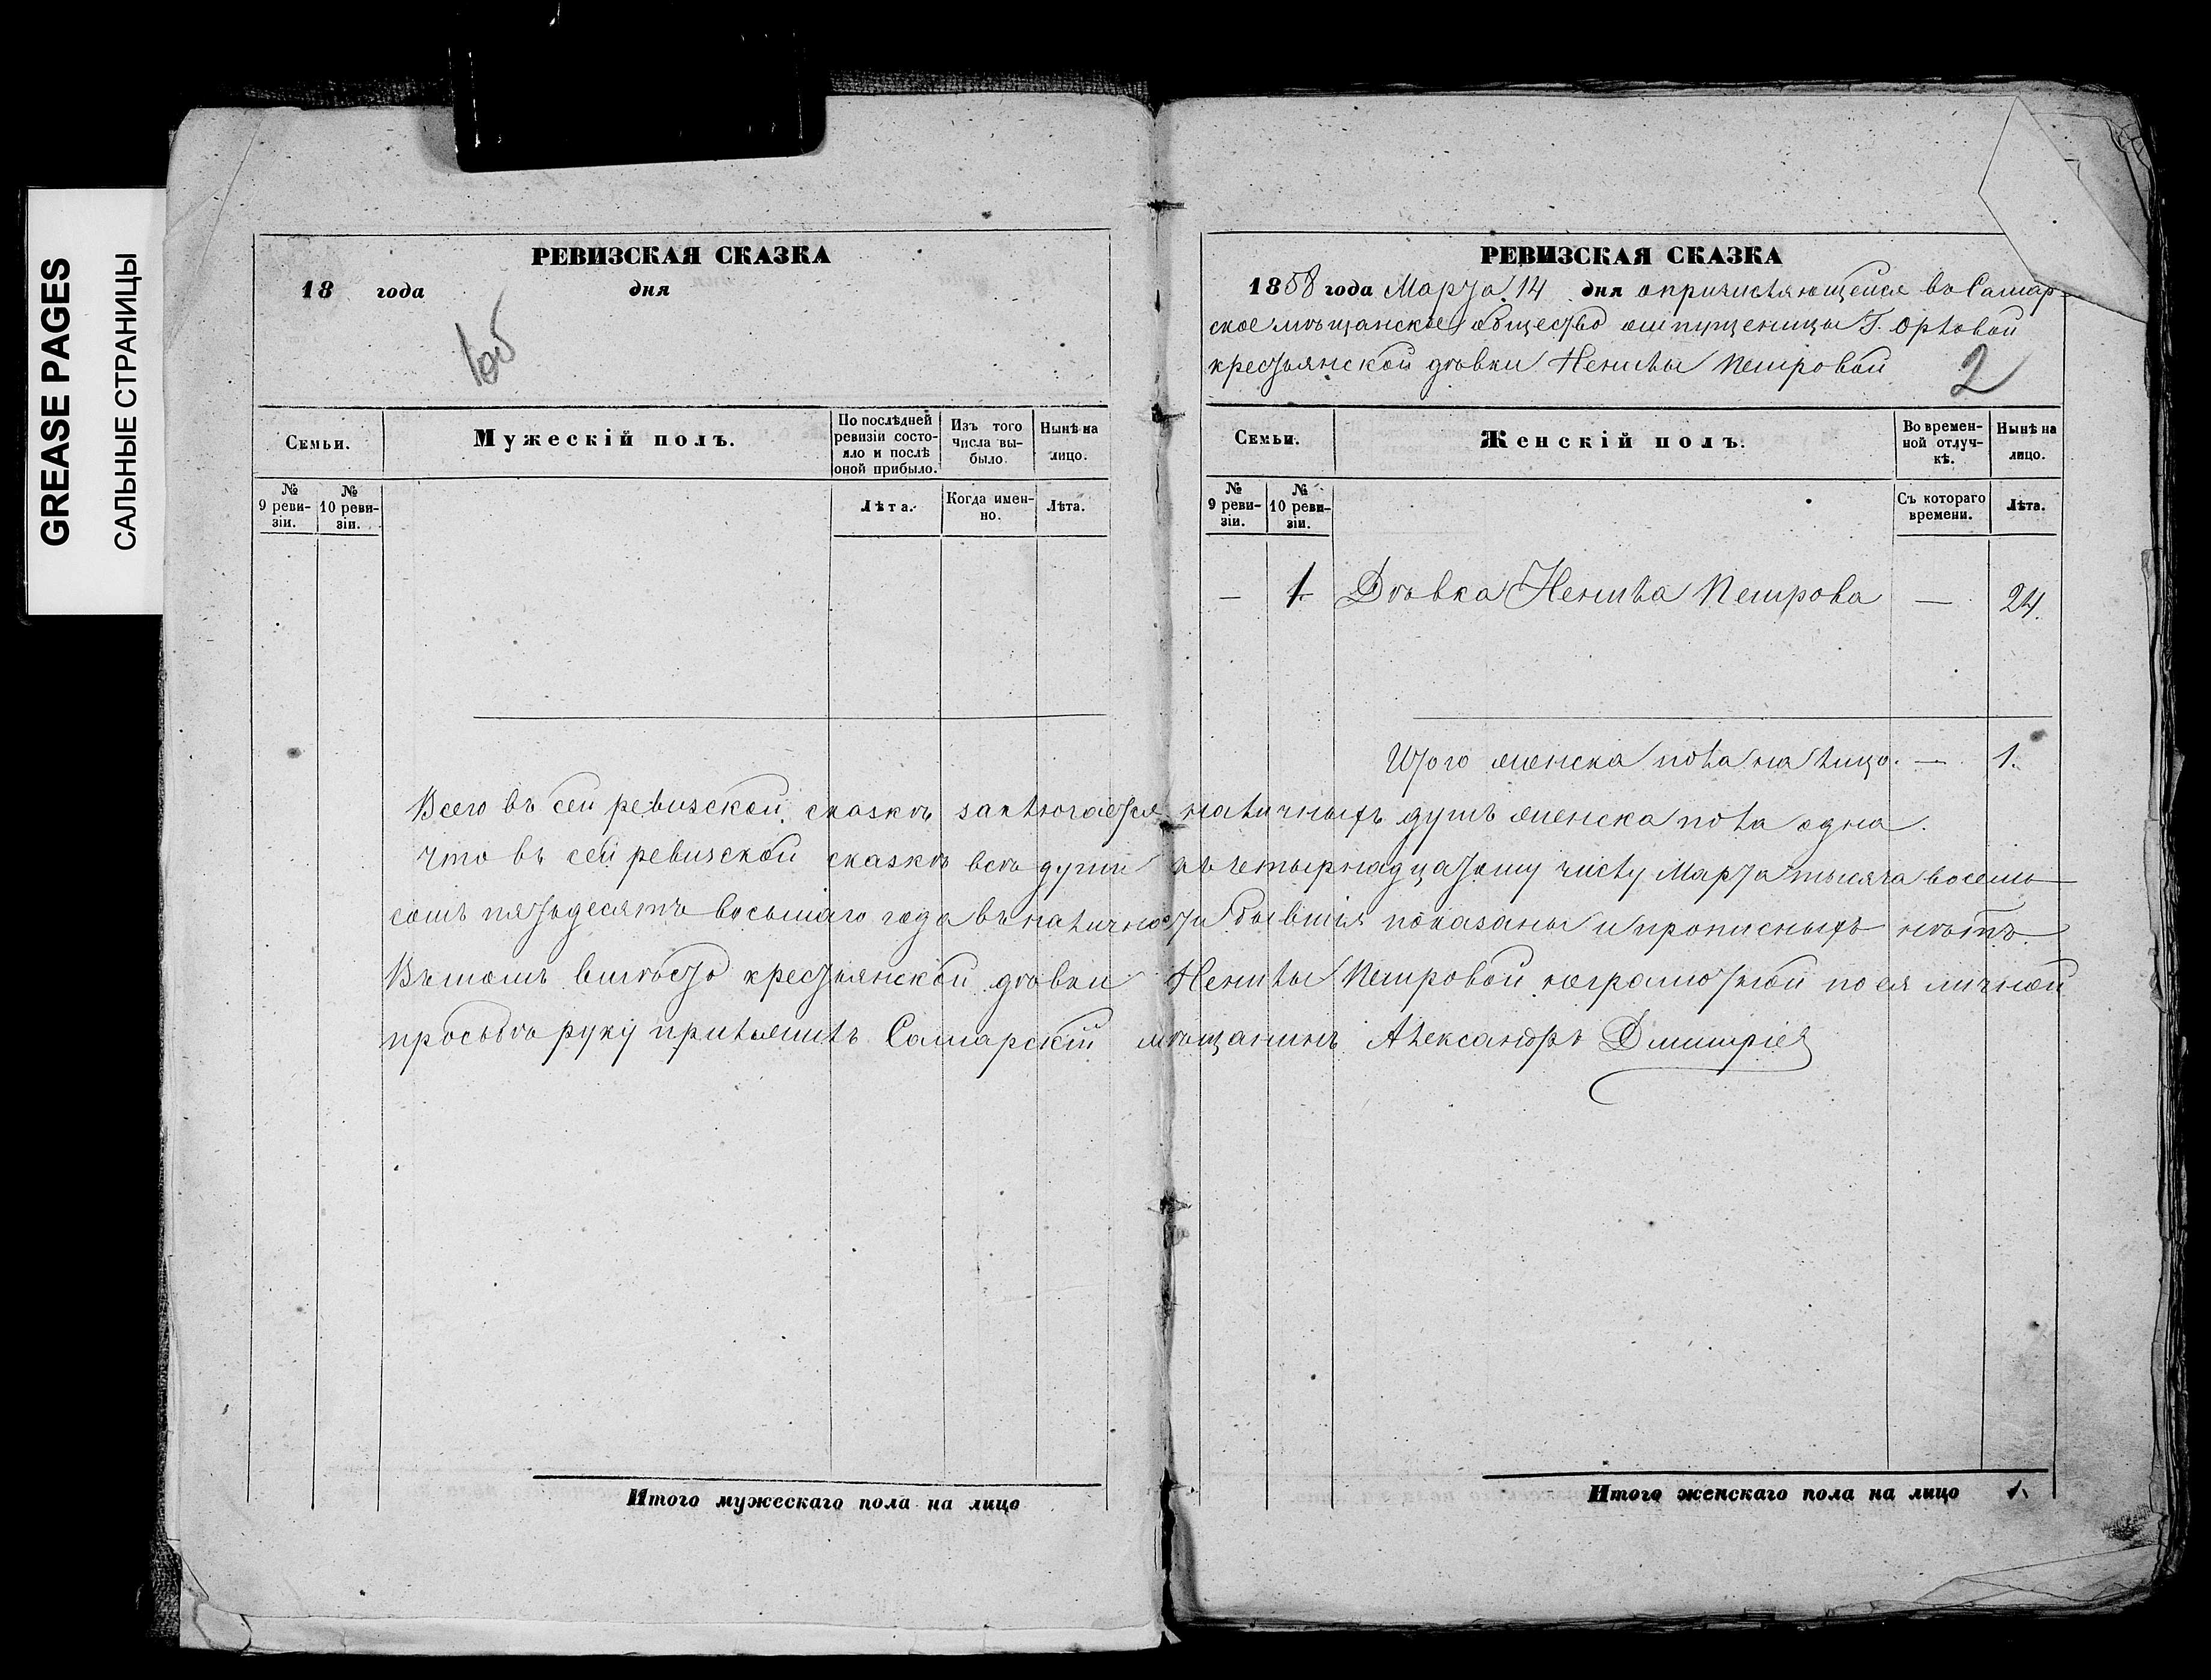 GREASE PAGES
САЛЬНЫЕ СТРАНИЦЫ
РЕВИЗСКАЯ СКАЗКА
18 года дня
Семьи.
Мужескій полъ.
По послѣдней ревизіи состояло и послѣ оной прибыло.
Изъ того числа выбыло.
Нынѣ на лицо.
№ 9 ревизіи.
№ 10 ревизіи.
Лѣта.
Когда именно.
Лѣта.
РЕВИЗСКАЯ СКАЗКА
1858 года Марта 14 дня о причисляющейся въ Самар-
ское мѣщанское общество отпущеницы Г. Орловой
крестьянской дѣвки Петровой
2
Семьи.
Женскій полъ.
Во временной отлучкѣ.
Нынѣ на лицо.
№ 9 ревизіи.
№ 10 ревизіи.
Съ котораго времени.
Лѣта.
— 1. Дѣвка Петрова — 24.
Итого женска пола на лицо. — 1.
Всего въ сей ревизской сказкѣ заключается наличныхъ душъ женска пола одна.
Что въ сей ревизской сказкѣ всѣ души къ четырнадцатому числу Марта тысяча восемь
сотъ пятьдесятъ восьмаго года въ наличности бывшія показаны и прописныхъ нѣтъ.
Въ томъ вмѣсто крестьянской дѣвки Петровой неграмотной по ея личной
просьбѣ руку приложилъ Самарскій мѣщанинъ Александръ Дмитріев
Итого мужескаго пола на лицо
Итого женскаго пола на лицо 1.